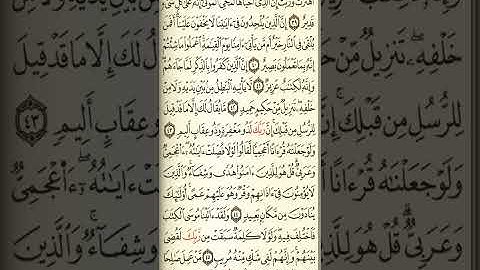 ٱهۡتَزَّتۡ وَرَبَتۡۚ إِنَّ ٱلَّذِيٓ أَحۡيَاهَا لَمُحۡيِ ٱلۡمَوۡتَىٰٓۚ إِنَّهُۥ عَلَىٰ كُلِّ شَيۡءٖ
قَدِيرٌ ٣٩ إِنَّ ٱلَّذِينَ يُلۡحِدُونَ فِيٓ ءَايَٰتِنَا لَا يَخۡفَوۡنَ عَلَيۡنَآۗ أَفَمَن
يُلۡقَىٰ فِي ٱلنَّارِ خَيۡرٌ أَم مَّن يَأۡتِيٓ ءَامِنٗا يَوۡمَ ٱلۡقِيَٰمَةِۚ ٱعۡمَلُواْ مَا شِئۡتُمۡ
إِنَّهُۥ بِمَا تَعۡمَلُونَ بَصِيرٌ ٤٠ إِنَّ ٱلَّذِينَ كَفَرُواْ بِٱلذِّكۡرِ لَمَّا جَآءَهُمۡۖ
وَإِنَّهُۥ لَكِتَٰبٌ عَزِيزٞ ٤١ لَّا يَأۡتِيهِ ٱلۡبَٰطِلُ مِنۢ بَيۡنِ يَدَيۡهِ وَلَا مِنۡ
خَلۡفِهِۦۖ تَنزِيلٞ مِّنۡ حَكِيمٍ حَمِيدٖ ٤٢ مَّا يُقَالُ لَكَ إِلَّا مَا قَدۡ قِيلَ
لِلرُّسُلِ مِن قَبۡلِكَۚ إِنَّ رَبَّكَ لَذُو مَغۡفِرَةٖ وَذُو عِقَابٍ أَلِيمٖ ٤٣
وَلَوۡ جَعَلۡنَٰهُ قُرۡءَانًا أَعۡجَمِيّٗا لَّقَالُواْ لَوۡلَا فُصِّلَتۡ ءَايَٰتُهُۥٓۖ ءَا۬عۡجَمِيّٞ
وَعَرَبِيّٞۗ قُلۡ هُوَ لِلَّذِينَ ءَامَنُواْ هُدٗى وَشِفَآءٞۚ وَٱلَّذِينَ
لَا يُؤۡمِنُونَ فِيٓ ءَاذَانِهِمۡ وَقۡرٞ وَهُوَ عَلَيۡهِمۡ عَمًىۚ أُوْلَٰٓئِكَ
يُنَادَوۡنَ مِن مَّكَانِۭ بَعِيدٖ ٤٤ وَلَقَدۡ ءَاتَيۡنَا مُوسَى ٱلۡكِتَٰبَ
فَٱخۡتُلِفَ فِيهِۚ وَلَوۡلَا كَلِمَةٞ سَبَقَتۡ مِن رَّبِّكَ لَقُضِيَ
بَيۡنَهُمۡۚ وَإِنَّهُمۡ لَفِي شَكّٖ مِّنۡهُ مُرِيبٖ ٤٥ مَّنۡ عَمِلَ صَٰلِحٗا